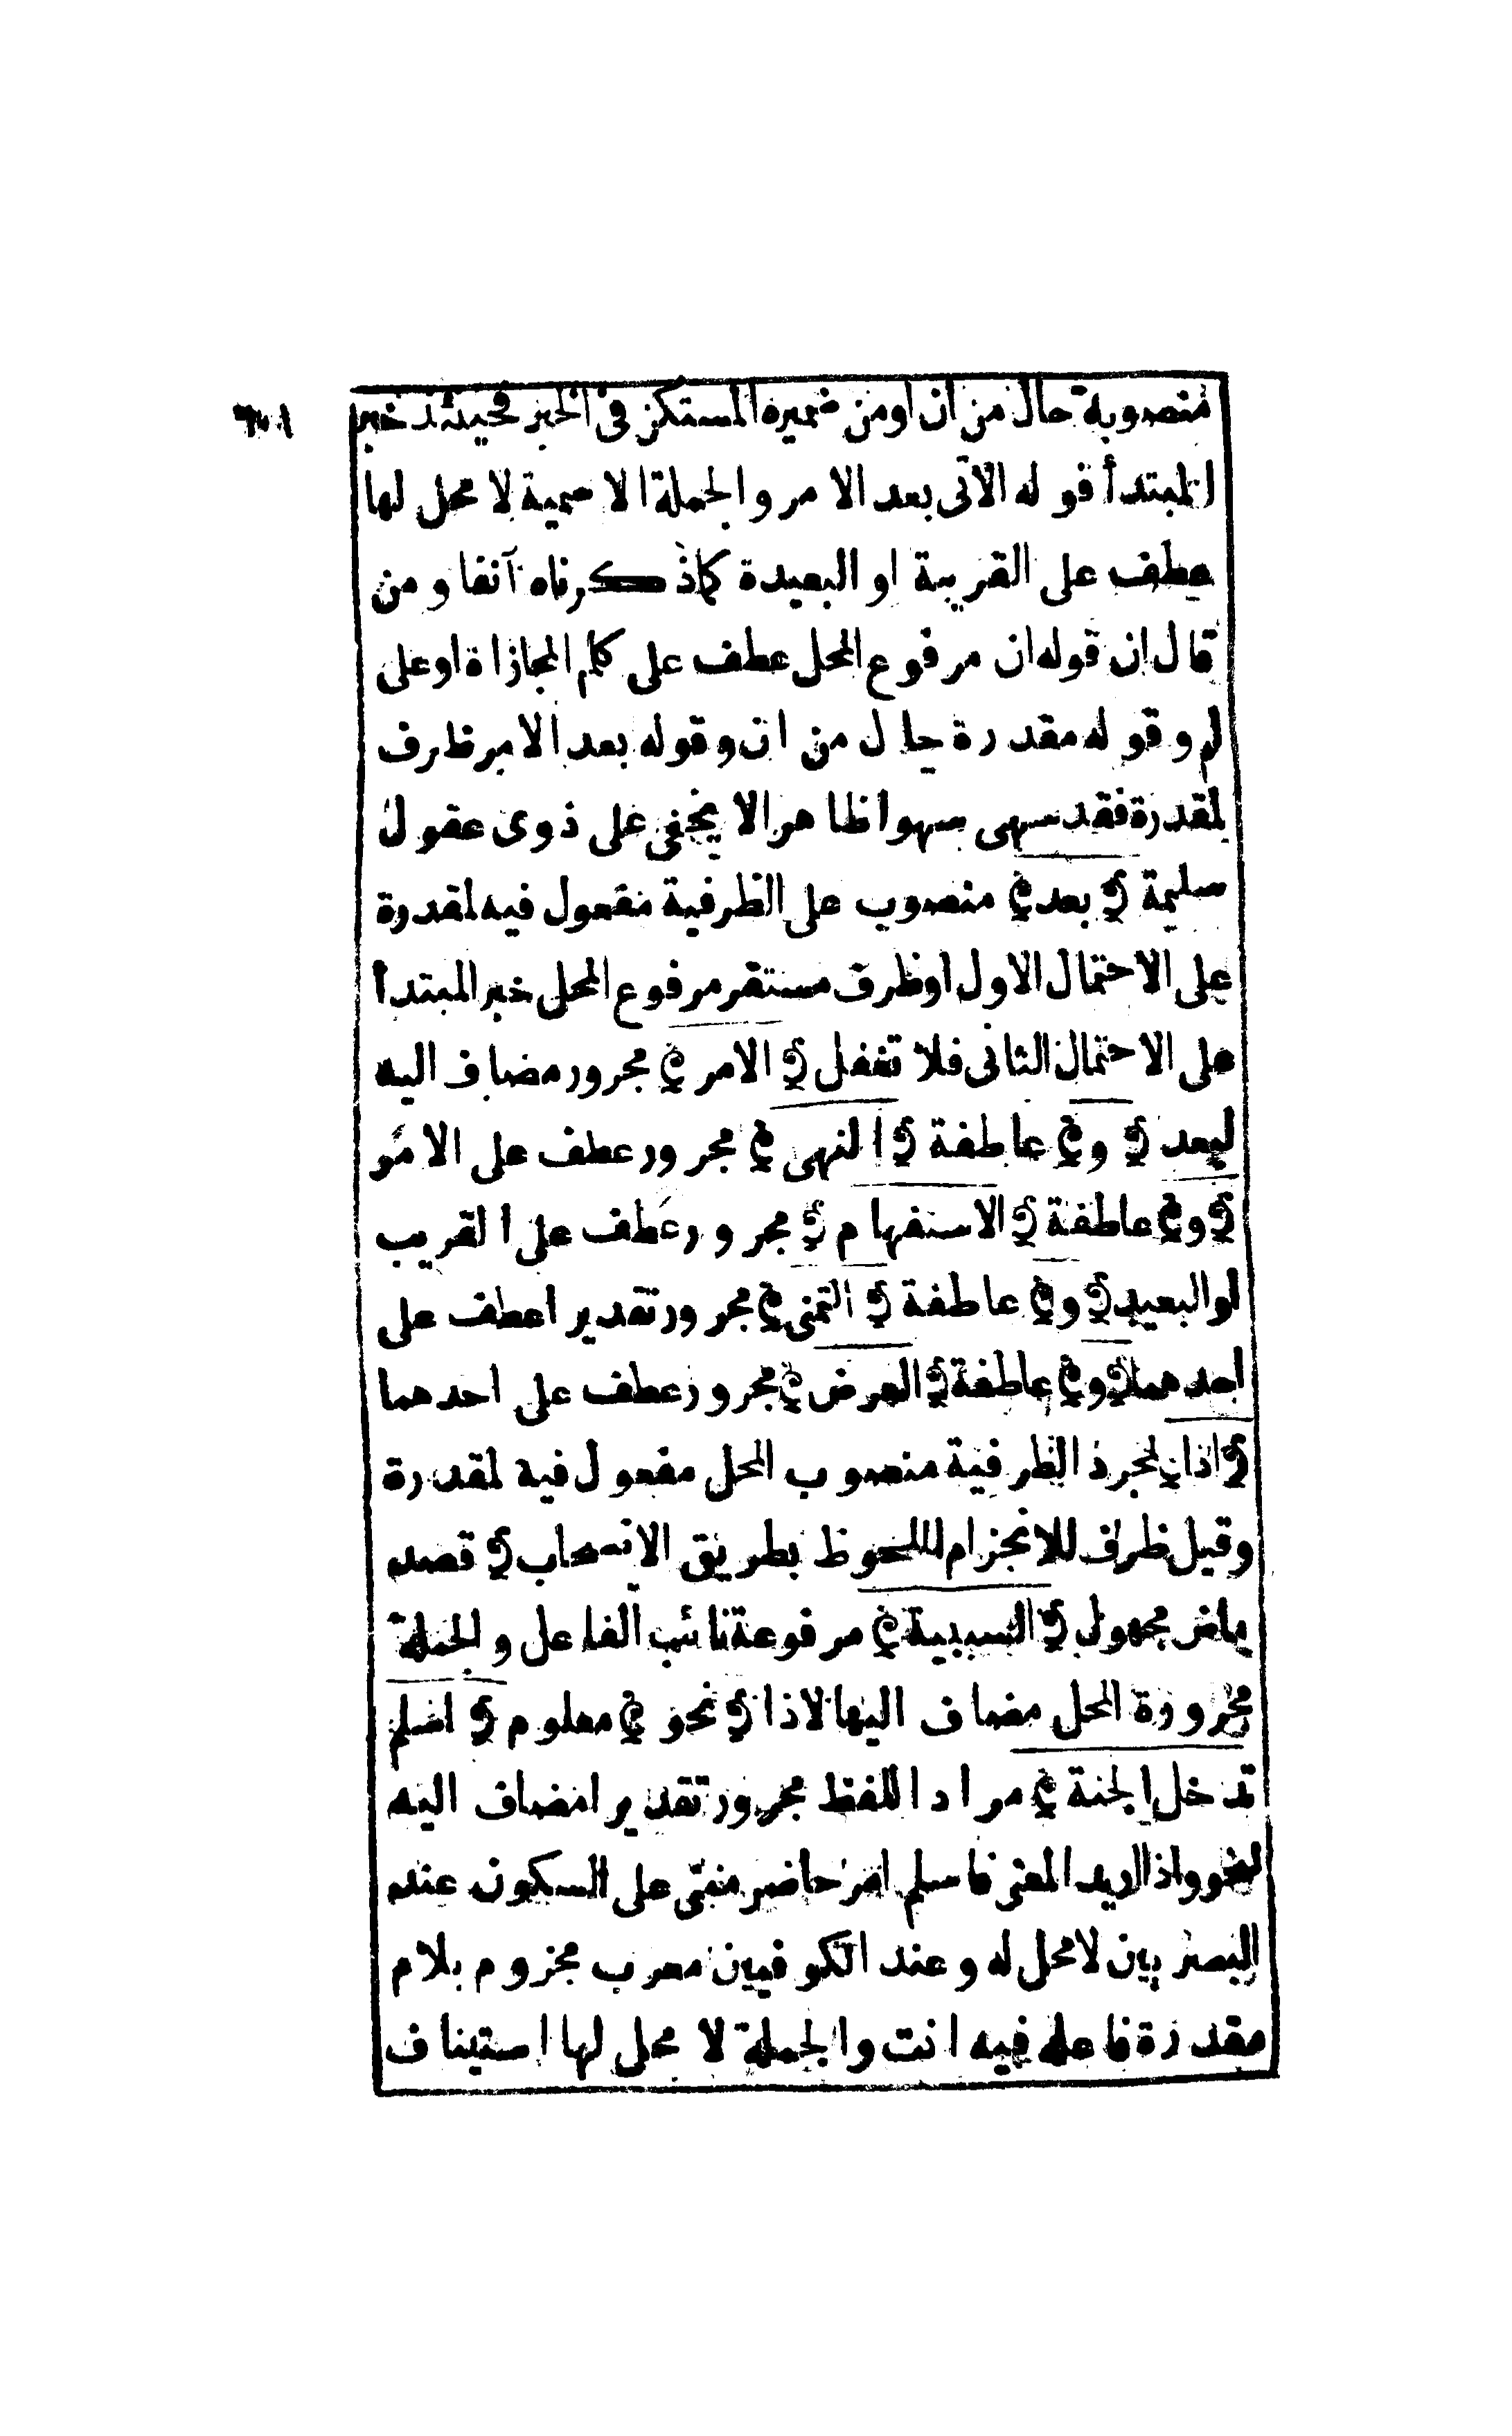 منصوبة حال من ان او من ضميره المستكن فى الخبر فحينئذ خبر
المبتدأ قوله الآتى بعد الامر والجملة الاسمية لا محل لها
عطف على القريبة او البعيدة كما ذكرناه آنفا ومن
قال ان قوله ان مرفوع المحل عطف على كلم المجازاة او على
لم وقوله مقدرة حال من ان وقوله بعد الامر ظرف
لمقدرة فقد سهى سهوا ظاهرا لا يخفى على ذوى عقول
سليمة ﴿ بعد ﴾ منصوب على الظرفية مفعول فيه لمقدرة
على الاحتمال الاول او ظرف مستقر مرفوع المحل خبر المبتدأ
على الاحتمال الثانى فلا تغفل ﴿ الامر ﴾ مجرور مضاف اليه
لبعد ﴿ و ﴾ عاطفة ﴿ النهى ﴾ مجرور عطف على الامر
﴿ و ﴾ عاطفة ﴿ الاستفهام ﴾ مجرور عطف على القريب
او البعيد ﴿ و ﴾ عاطفة ﴿ التمنى ﴾ مجرور تقديرا عطف على
احدهما ﴿ و ﴾ عاطفة ﴿ العرض ﴾ مجرور عطف على احدهما
﴿ اذا ﴾ لمجرد الظرفية منصوب المحل مفعول فيه لمقدرة
وقيل ظرف للانجزام الملحوظ بطريق الانسحاب ﴿ قصد
ماض مجهول ﴿ السببية ﴾ مرفوعة نائب الفاعل والجملة
مجرورة المحل مضاف اليها لاذا ﴿ نحو ﴾ معلوم ﴿ اسلم
تدخل الجنة ﴾ مراد اللفظ مجرور تقديرا مضاف اليه
لنحو واذا اريد المعنى فاسلم امر حاضر مبنى على السكون عند
البصريين لا محل له وعند الكوفيين معرب مجزوم بلام
مقدرة فاعله فيه انت والجملة لا محل لها استيناف